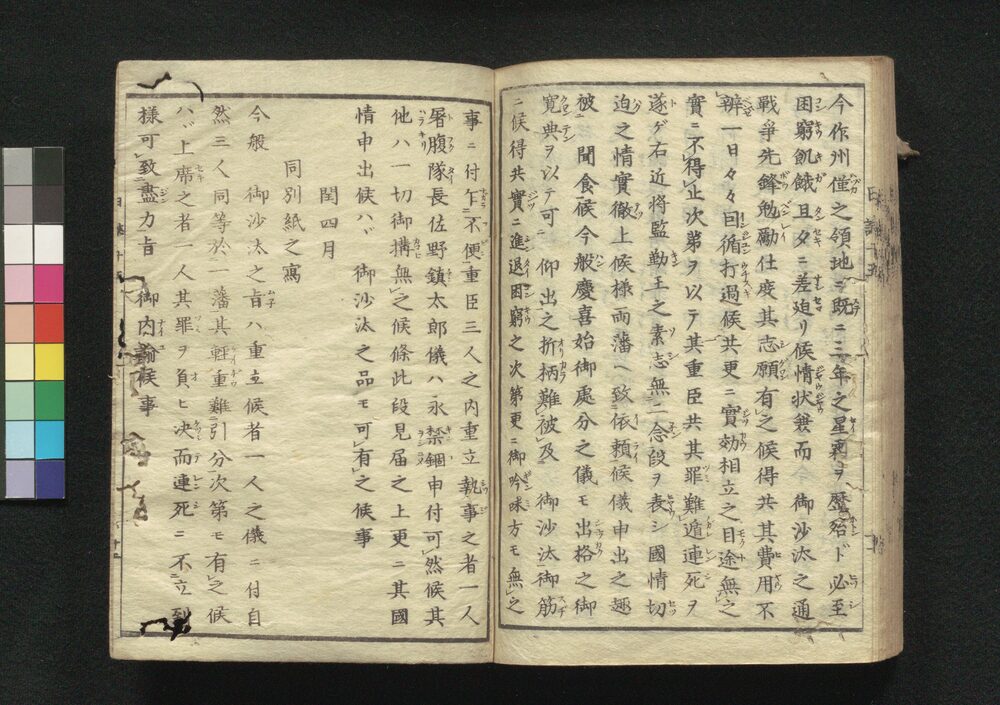 今作州僅之領地ニテ既ニ三年之星霜ヲ歴殆ド必至
困窮飢餓且夕ニ差迫リ候情状無而 御沙汰之通
戦爭先鋒勉勵仕度其志願有之候得共其費用不
辨一日々々因循打過候共更ニ實効相立之目途無之
實ニ不得止次第ヲ以テ其重臣共其罪難遁連死ヲ
遂ゲ右近將監勤王之素志無二念段ヲ表シ國情切
迫之情實徹上候様両藩ヘ致依頼候儀申出之趣
被 聞食候今般慶喜始御處分之儀モ出格之御
寛典ヲ以テ可 仰出之折柄難被及 御沙汰御筋
ニ候得共實ニ進退困窮之次第更ニ御吟味方モ無之
事ニ付乍不便重臣三人之内重立執事之者一人
屠腹隊長佐野鎮太郎儀ハ永禁錮申付可然候其
他ハ一切御搆無之候條此段見届之上更ニ其國
情申出候ハヾ 御沙汰之品モ可有之候事
閏四月
同別紙之寫
今般 御沙汰之旨ハ重立候者一人之儀ニ付自
然三人同等於一藩其輕重難引分次第モ有之候
ハヾ上席之者一人其罪ヲ負ヒ决而連死ニ不立到
様可致盡力旨 御内諭候事